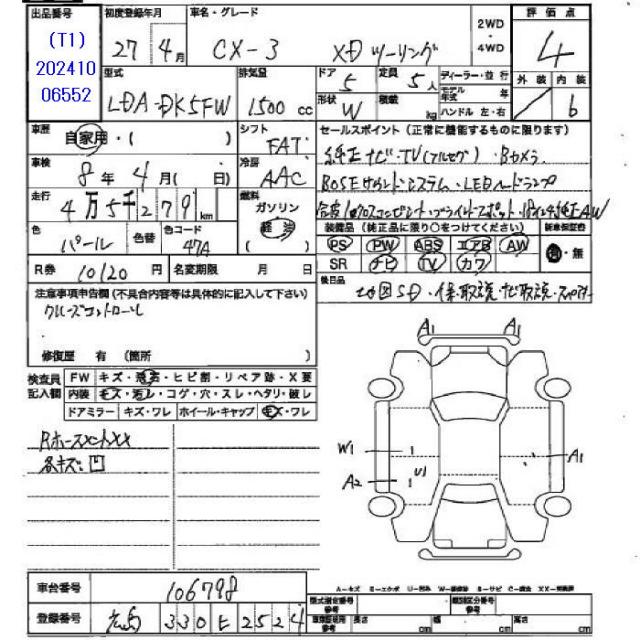 出品番号 初度登録年月 車名・グレード 2WD・4WD 評価点
(T1) 27年4月 CX-3 XDツーリング 4
202410
06552
型式 排気量 ドア 5 定員 5人 ディーラー・並行 外装 内装
LDA-DK5FW 1500cc 形状 W 積載 kg モデル年式 年 ハンドル 左・右 6
車歴 自家用・( ) シフト FAT セールスポイント(正常に機能するものに限ります)
純正ナビ・TV(フルセグ)・Bカメラ
車検 8年4月( 日) 冷房 AAC
BOSEサウンドシステム・LEDヘッドランプ
走行 4万5千279km 燃料 ガソリン 軽油
装備品(純正品に限り○をつけてください) 新車保証書
色 パール 色替 色コード 47A
PS PW ABS エアB AW 有・無
SR ナビ TV カワ
R券 10120円 名変期限 月 日
後日品 地図SD・保・取説・ナビ取説・スペアキー
注意事項申告欄(不具合内容等は具体的に記入して下さい)
クルーズコントロール
修復歴 有(箇所 )
検査員記入欄 FW キズ・飛石・ヒビ割・リペア跡・X要
内装 キズ・汚レ・コゲ・穴・スレ・ヘタリ・破レ
ドアミラー キズ・ワレ ホイール・キャップ キズ・ワレ
A1 A1
各キズ・凹
W1 A1
U1
A2
車台番号 106798
登録番号 広島 330 E 2524
型式指定番号 参考 類別区分番号 参考
長さ cm 幅 cm 高さ cm